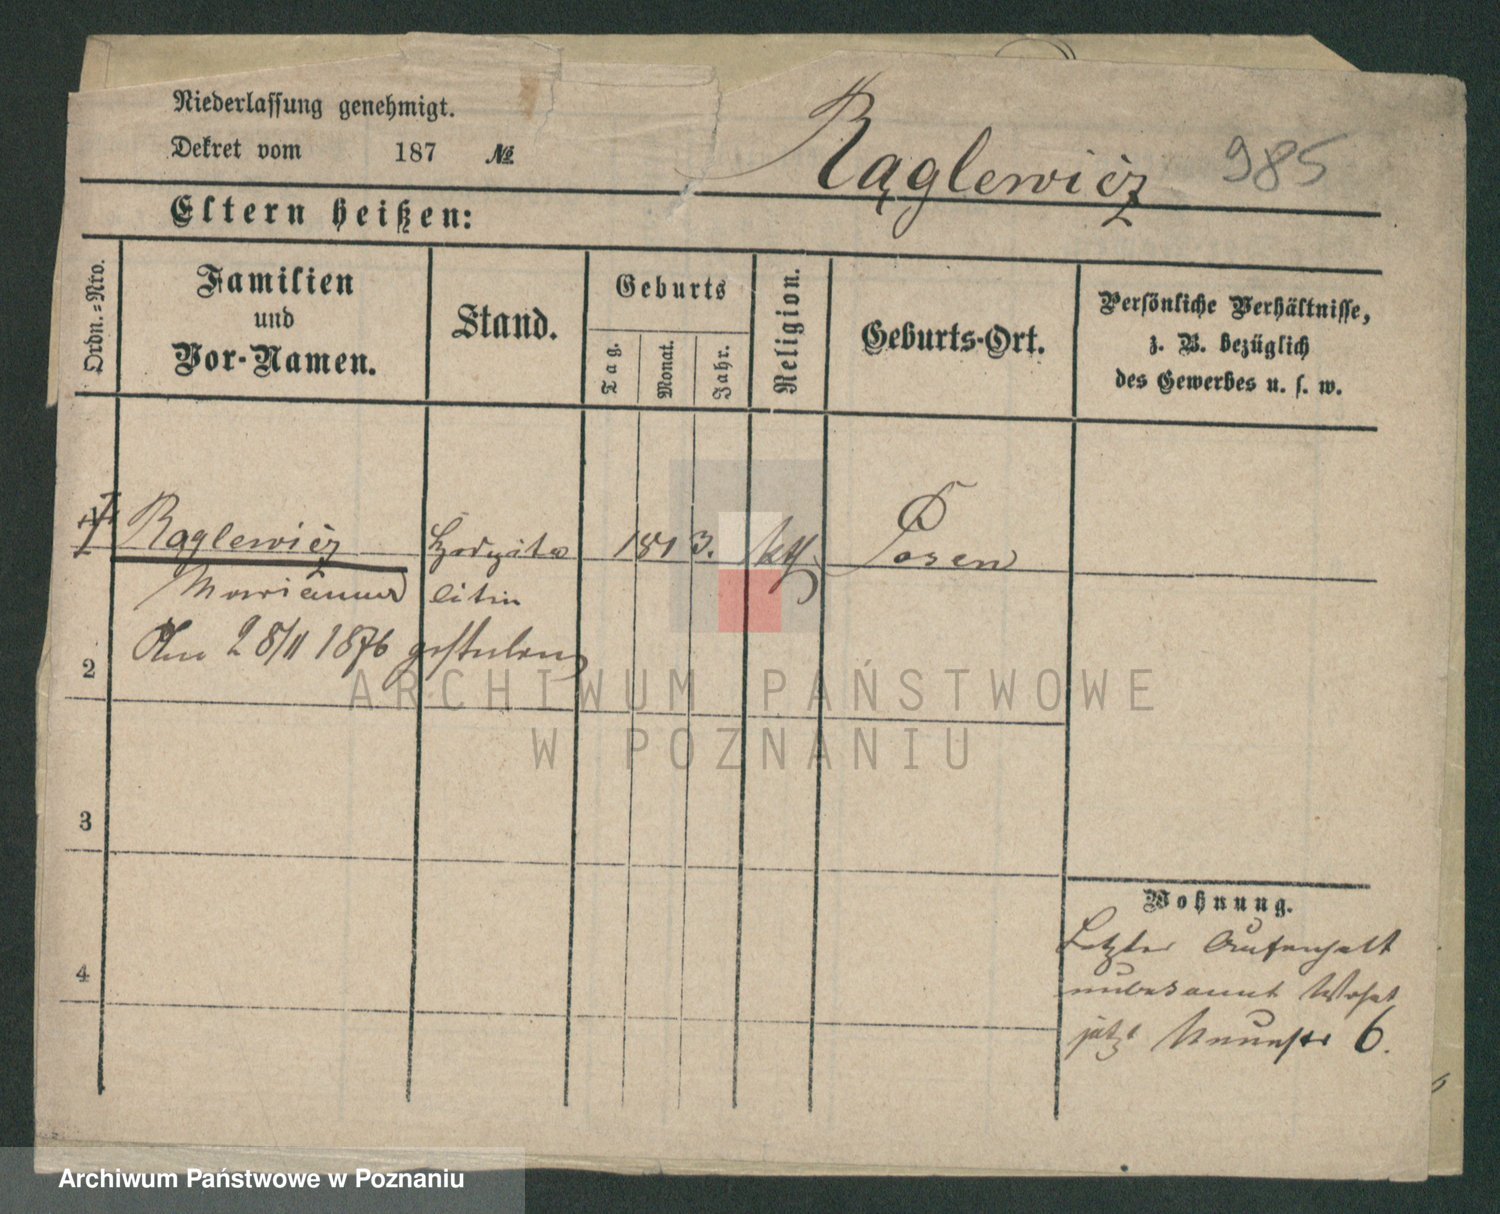 Niederlassung genehmigt.
Dekret vom 187 №
Rąglewicz 985
Eltern heißen:
Ordn.=Nro.
Familien
und
Vor-Namen.
Stand.
Geburts
Tag.
Monat.
Jahr.
Religion.
Geburts-Ort.
Persönliche Verhältnisse,
z. B. bezüglich
des Gewerbes u. s. w.
Rąglewicz
1813. kth Posen
Marianna
Am 28/11 1876 gestorben
2
3
4
Wohnung.
Letzter Aufenthalt
unbekannt Wohnt
jetzt 6.
ARCHIWUM PAŃSTWOWE
W POZNANIU
Archiwum Państwowe w Poznaniu